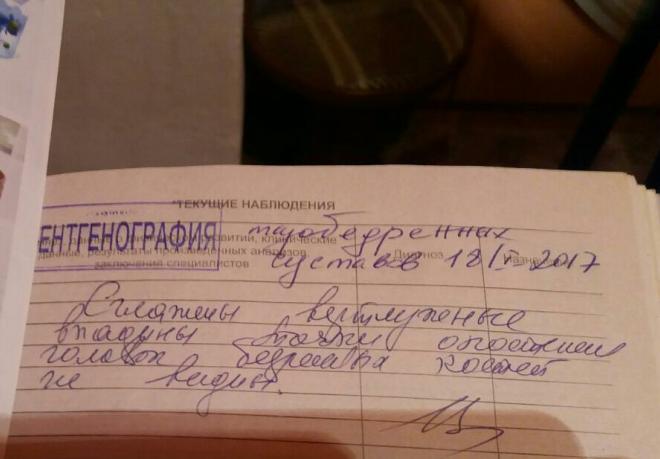 ТЕКУЩИЕ НАБЛЮДЕНИЯ
ЕНТГЕНОГРАФИЯ тазобедренных
развитии, клинические
данные, результаты произведенных анализов, Диагноз Назначен
заключения специалистов суставов 18/I-2017
Сглажены вертлужные
впадины точки окостенения
головок бедренных костей
не видны.